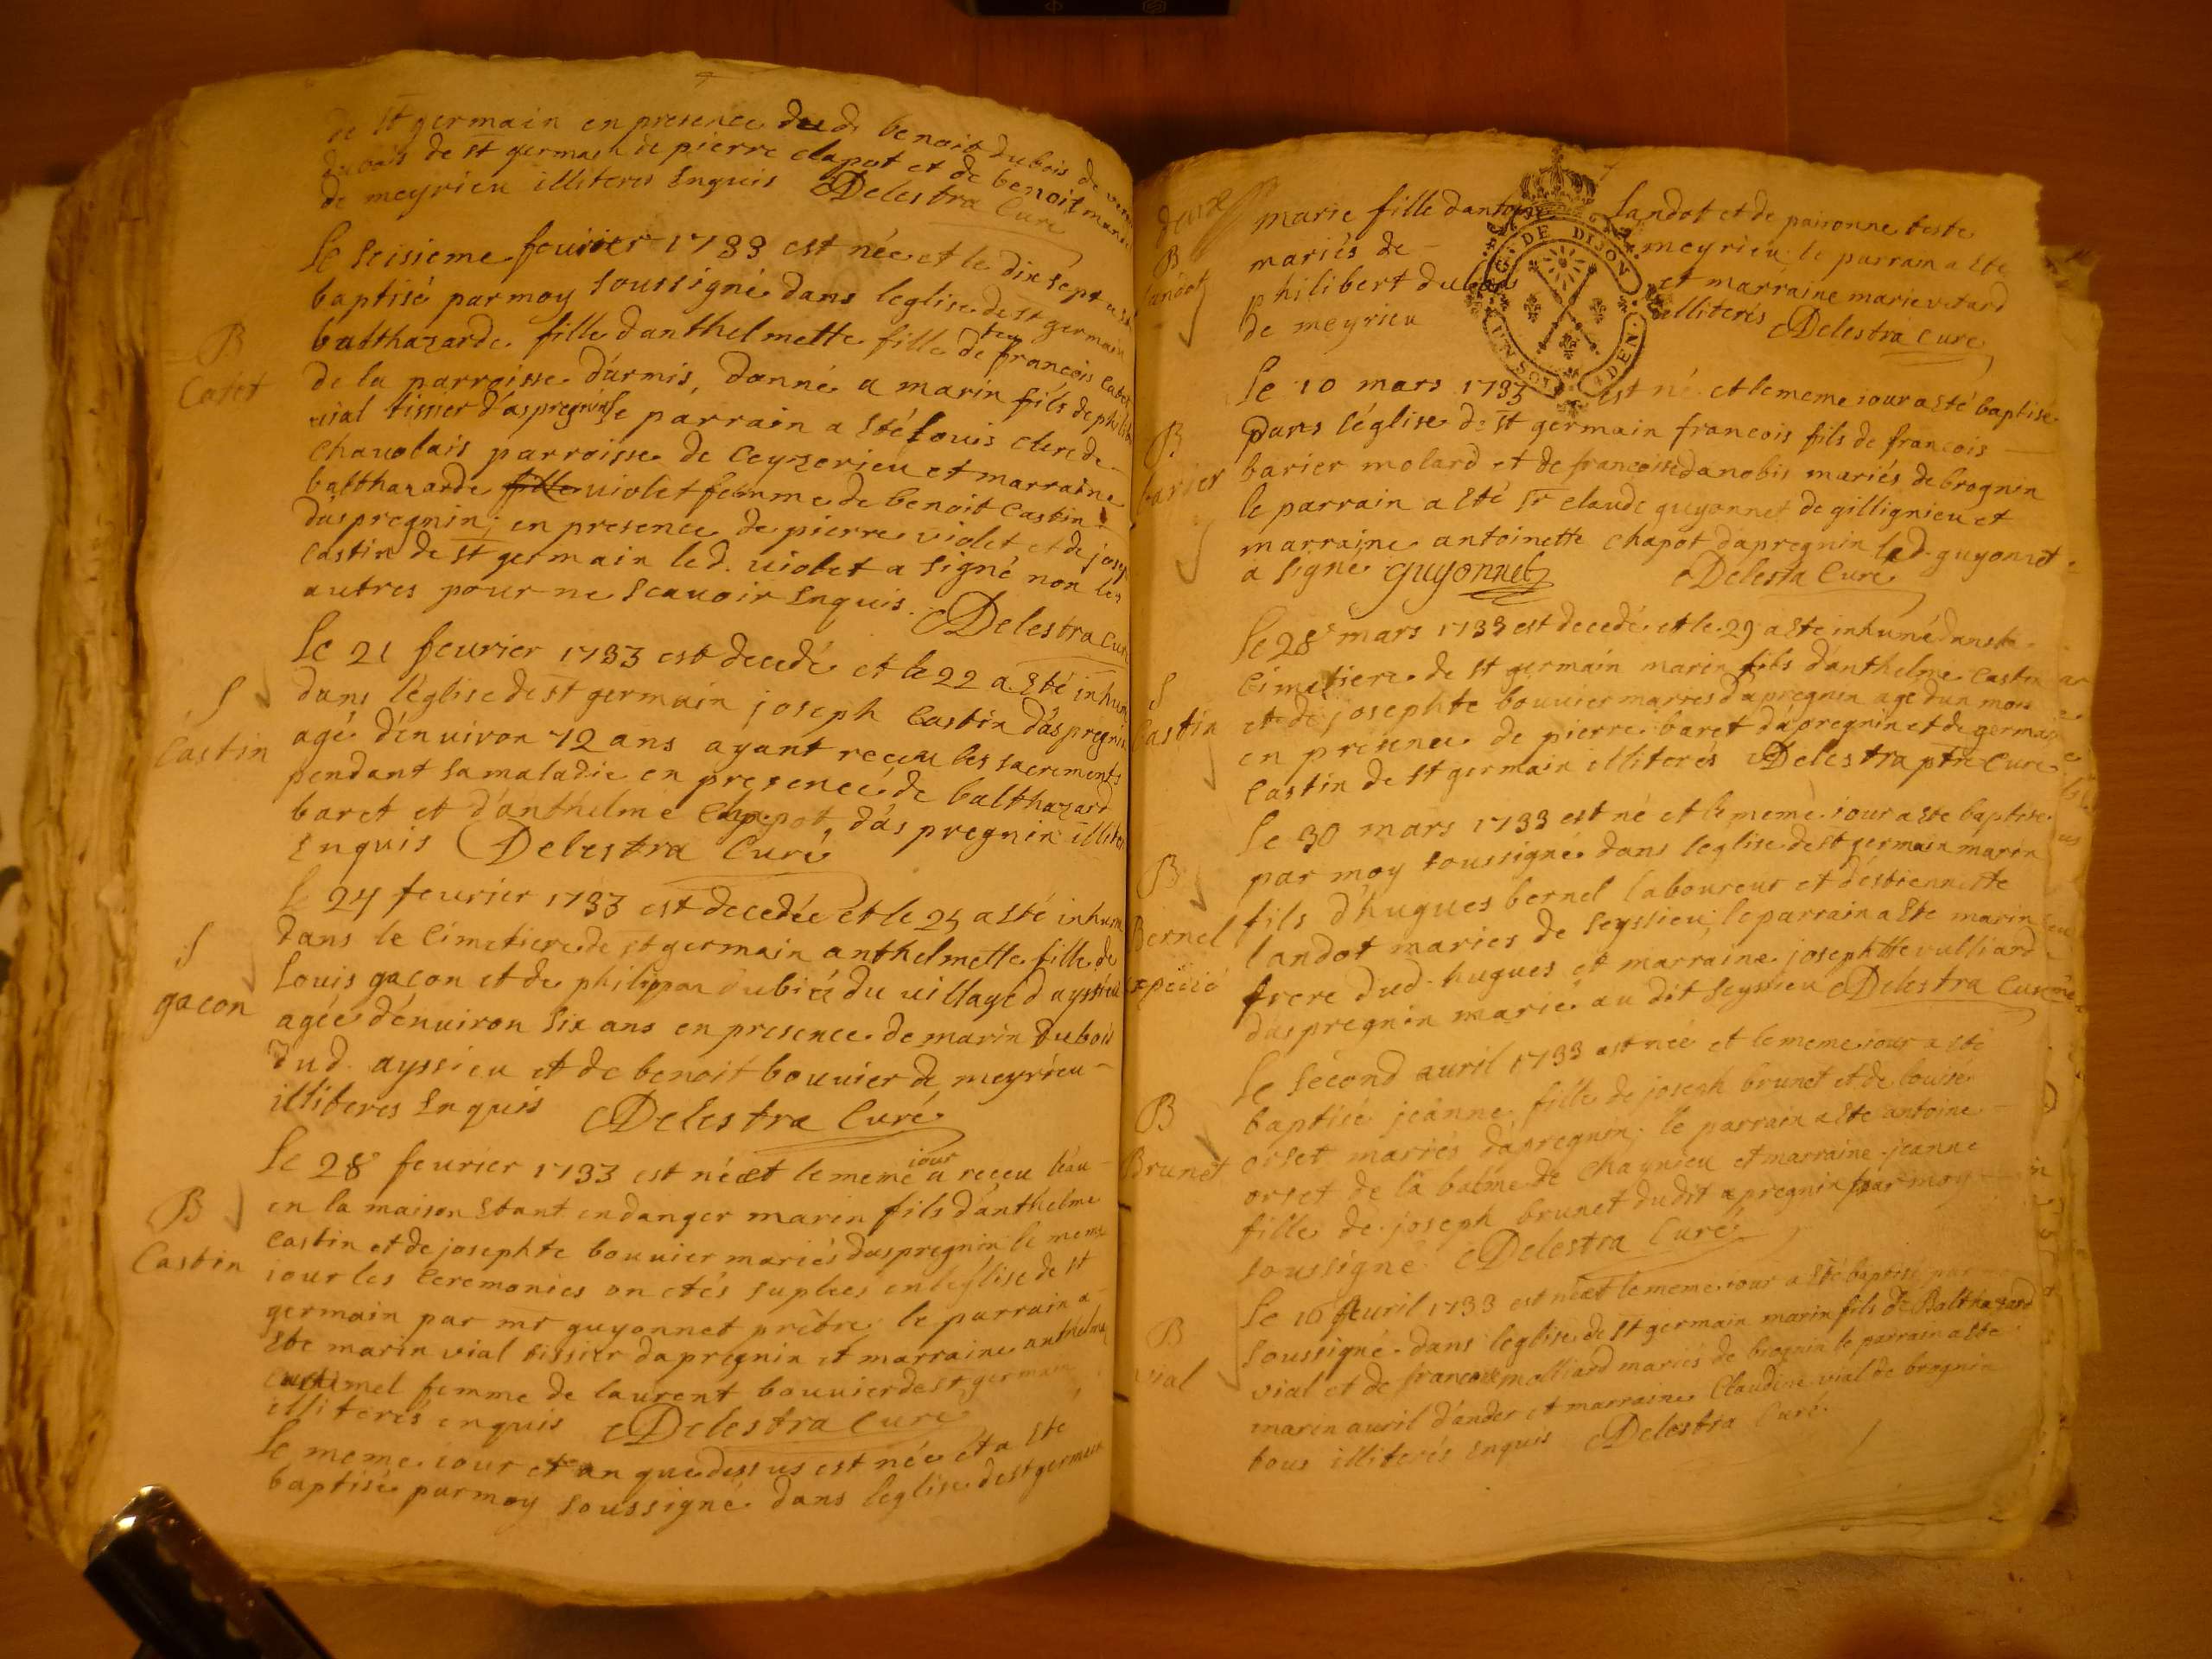 de st germain en presence dud. benoit dubois de
dubois de st germain de pierre clapot et de benoit
de meyrieu illiteres Enquis Delestra Curé
Le seisieme feurier 1733 est née et le dix sept a été
baptisé par moy soussigné dans leglise de st germain
B
balthazarde fille danthelmette fille de feu francois Catet
Catet
de la parroisse d'armis, donné a marin fils de philib
vial tissier d'aspregnin le parrain a Eté Louis clerc de
chauolais parroisse de Ceyzerieu et marraine
balthazarde fille violet femme de benoit Castin
daspregnin; en presence de pierre violet et de josep
Castin de st germain led. violet a signé non les
autres pour ne scauoir Enquis. Delestra Curé
Le 21 feurier 1733 est decedé et le 22 a Eté inhumé
S
dans l'église de st germain joseph Castin d'aspregnin
Castin
agé d'enuiron 72 ans ayant receu les sacrements
pendant sa maladie en presence de balthazard
baret et d'anthelme Chapot, d'aspregnin illiteres
Enquis Delestra Curé
Le 24 feurier 1733 est decedée et le 25 a Eté inhumé
S
dans le Cimetiere de st germain anthelmette fille de
gacon
Louis gacon et de philippa dubié du village d'ayssieu
agée d'enuiron six ans en presence de marin dubois
dud. ayssieu et de benoit bouvier de meyrieu
illiteres Enquis Delestra Curé
Le 28 feurier 1733 est né et le meme iour a receu l'eau
B
en la maison Etant en danger marin fils d'anthelme
Castin
Castin et de josephte bouuier mariés daspregnin le meme
iour les Ceremonies on etés suplées en leglise de st
germain par mr guyonnet prêtre le parrain a
Ete marin vial tissier dapregnin et marraine anthelme
femme de laurent bouuier de st germain
illiterés enquis Delestra Curé
Le meme iour et an que dessus est née et a Ete
baptisée par moy soussigné dans leglise de st germain
deux
marie fille dantoine Landot et de paironne teste
B
Landot
mariés de meyrieu le parrain a Eté
philibert dubois et marraine marie vetard
de meyrieu illiterés Delestra Curé
G. DE DIJON
DEN.
Le 10 mars 1733 est né et le meme iour a Eté baptisé
B
dans l'église de st germain francois fils de francois
barier
barier molard et de francoise danobis mariés de brognin
le parrain a Eté Sr claude guyonnet de gillignieu et
marraine antoinette chapot dapregnin led. guyonnet
a signé guyonnet Delestra Curé
Le 28 mars 1733 est decedé et le 29 a Eté inhumé dans le
S
Cimetiere de st germain marin fils danthelme Castin
Castin
et de josephte bouvier mariés dapregnin agé dun mois
en presence de pierre baret d'apregnin et de germain
Castin de st germain illiterés Delestra ptre Curé
Le 30 mars 1733 est né et le meme iour a Ete baptisé
B
par moy soussigné dans leglise de st germain marin
Bernel
fils d'hugues bernel laboureur et d'estiennette
Landot mariés de Seyssieu; le parrain a Ete marin
expedié
frere dud. hugues et marraine josephte vulliard
daspregnin marié au dit Seyssieu Delestra Curé
Le second auril 1733 est née et le meme iour a Eté
B
baptisée jeanne fille de joseph brunet et de louise
Brunet
orset mariés d'apregnin; le parrain a Ete antoine
orset de la balme de Chagnieu et marraine jeanne
fille de joseph brunet dudit apregnin par moy
soussigné Delestra Curé
Le 16 Auril 1733 est né et le meme iour a Eté baptisé par moy
B
soussigné dans leglise de st germain marin fils de Balthazard
vial
vial et de francoise molliard mariés de brognin le parrain a Ete
marin auril d'andert et marraine Claudine vial de brognin
tous illiterés Enquis Delestra Curé